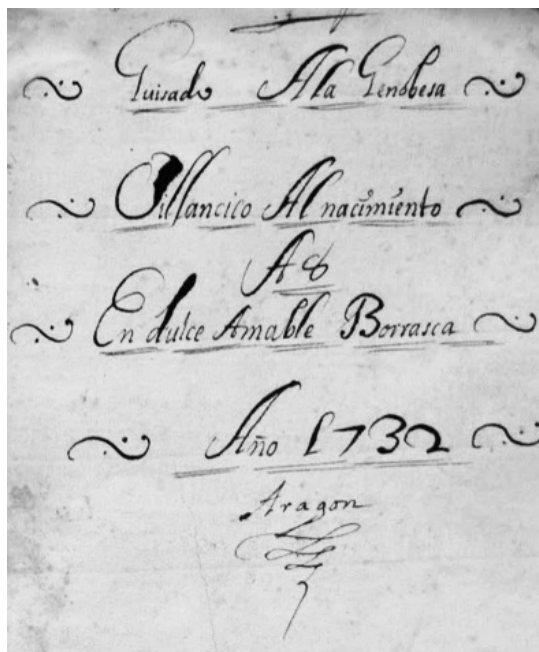 Guisado Ala Genobesa
Villancico Al nacimiento
A 8
En dulce Amable Borrasca
Año 1732
Aragon